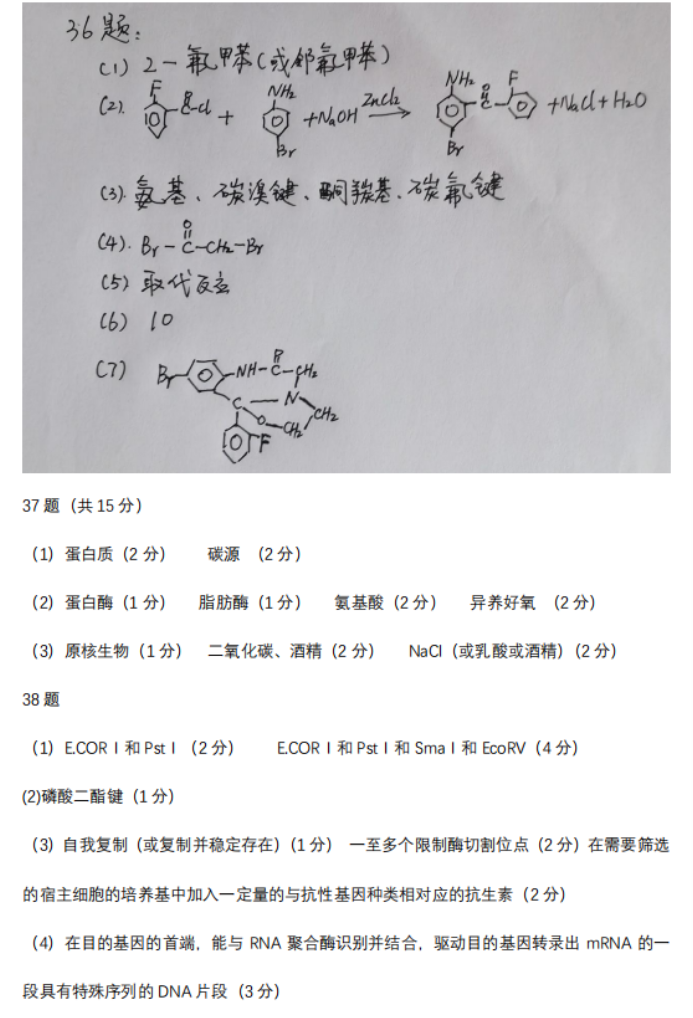 36题:
(1) 2-氟甲苯(或邻氟甲苯)
(2). F C O Cl + NH₂ Br +NaOH ZnCl₂ → NH₂ C O F Br +NaCl+H₂O
(3). 氨基、碳溴键、酮羰基、碳氟键
(4). Br-C(=O)-CH₂-Br
(5) 取代反应
(6) 10
(7) Br NH-C(=O)-CH₂ C N O CH₂ CH₂ F
37 题（共 15 分）
（1）蛋白质（2 分） 碳源 （2 分）
（2）蛋白酶（1 分） 脂肪酶（1 分） 氨基酸（2 分） 异养好氧 （2 分）
（3）原核生物（1 分） 二氧化碳、酒精（2 分） NaCl（或乳酸或酒精）（2 分）
38 题
（1）E.COR Ⅰ 和 Pst Ⅰ （2 分） E.COR Ⅰ 和 Pst Ⅰ 和 Sma Ⅰ 和 EcoRV（4 分）
(2)磷酸二酯键（1 分）
（3）自我复制（或复制并稳定存在）（1 分） 一至多个限制酶切割位点（2 分）在需要筛选
的宿主细胞的培养基中加入一定量的与抗性基因种类相对应的抗生素（2 分）
（4）在目的基因的首端，能与 RNA 聚合酶识别并结合，驱动目的基因转录出 mRNA 的一
段具有特殊序列的 DNA 片段（3 分）